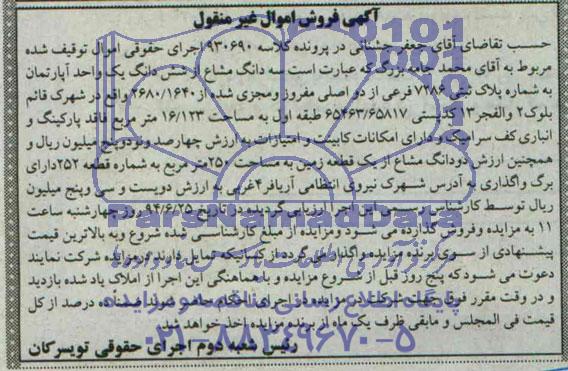 آگهی فروش اموال غیر منقول
حسب تقاضای آقای جعفر چشتائی در پرونده کلاسه ۹۳۰۶۹۰ اجرای حقوقی اموال توقیف شده
مربوط به آقای محمد جواد بزرگ که عبارت است سه دانگ مشاع از شش دانگ یک واحد آپارتمان
به شماره پلاک ثبتی ۷۲۸۶ فرعی از دو اصلی مفروز ومجزی شده از ۲۶۸۰/۱۶۴۰ واقع در شهرک قائم
بلوک۲ والفجر۱۳ کدپستی ۶۵۴۶۳/۶۵۸۱۷ طبقه اول به مساحت ۱۶/۱۲۳ متر مربع فاقد پارکینگ و
انباری کف سرامیک و دارای امکانات کابینت و امتیازات به ارزش چهارصد ونودوپنج میلیون ریال و
همچنین ارزش دودانگ مشاع از یک قطعه زمین به مساحت ۲۵۰متر مربع به شماره قطعه ۲۵۲دارای
برگ واگذاری به آدرس شهرک نیروی انتظامی آریافر۴غربی به ارزش دویست و سی وپنج میلیون
ریال توسط کارشناس رسمی این اجرا ارزیابی گردیده در تاریخ ۹۴/۶/۲۵ روز چهارشنبه ساعت
۱۱ به مزایده وفروش گذارده می شود ومزایده از مبلغ کارشناسی شده شروع وبه بالاترین قیمت
پیشنهادی از سوی برنده مزایده واگذار می گردد از کسانیکه تمایل دارند در مزایده شرکت نمایند
دعوت می شود که پنج روز قبل از شروع مزایده و با هماهنگی این اجرا از املاک یاد شده بازدید
و در وقت مقرر فوق جهت شرکت در مزایده در اجرای احکام حاضر شوند ضمنأ ده درصد از کل
قیمت فی المجلس و مابقی ظرف یک ماه از برنده مزایده اخذ خواهد شد.
رئیس شعبه دوم اجرای حقوقی تویسرکان
ParsNamadData
۰۲۱-۸۸۳۴۹۶۷۰-۵